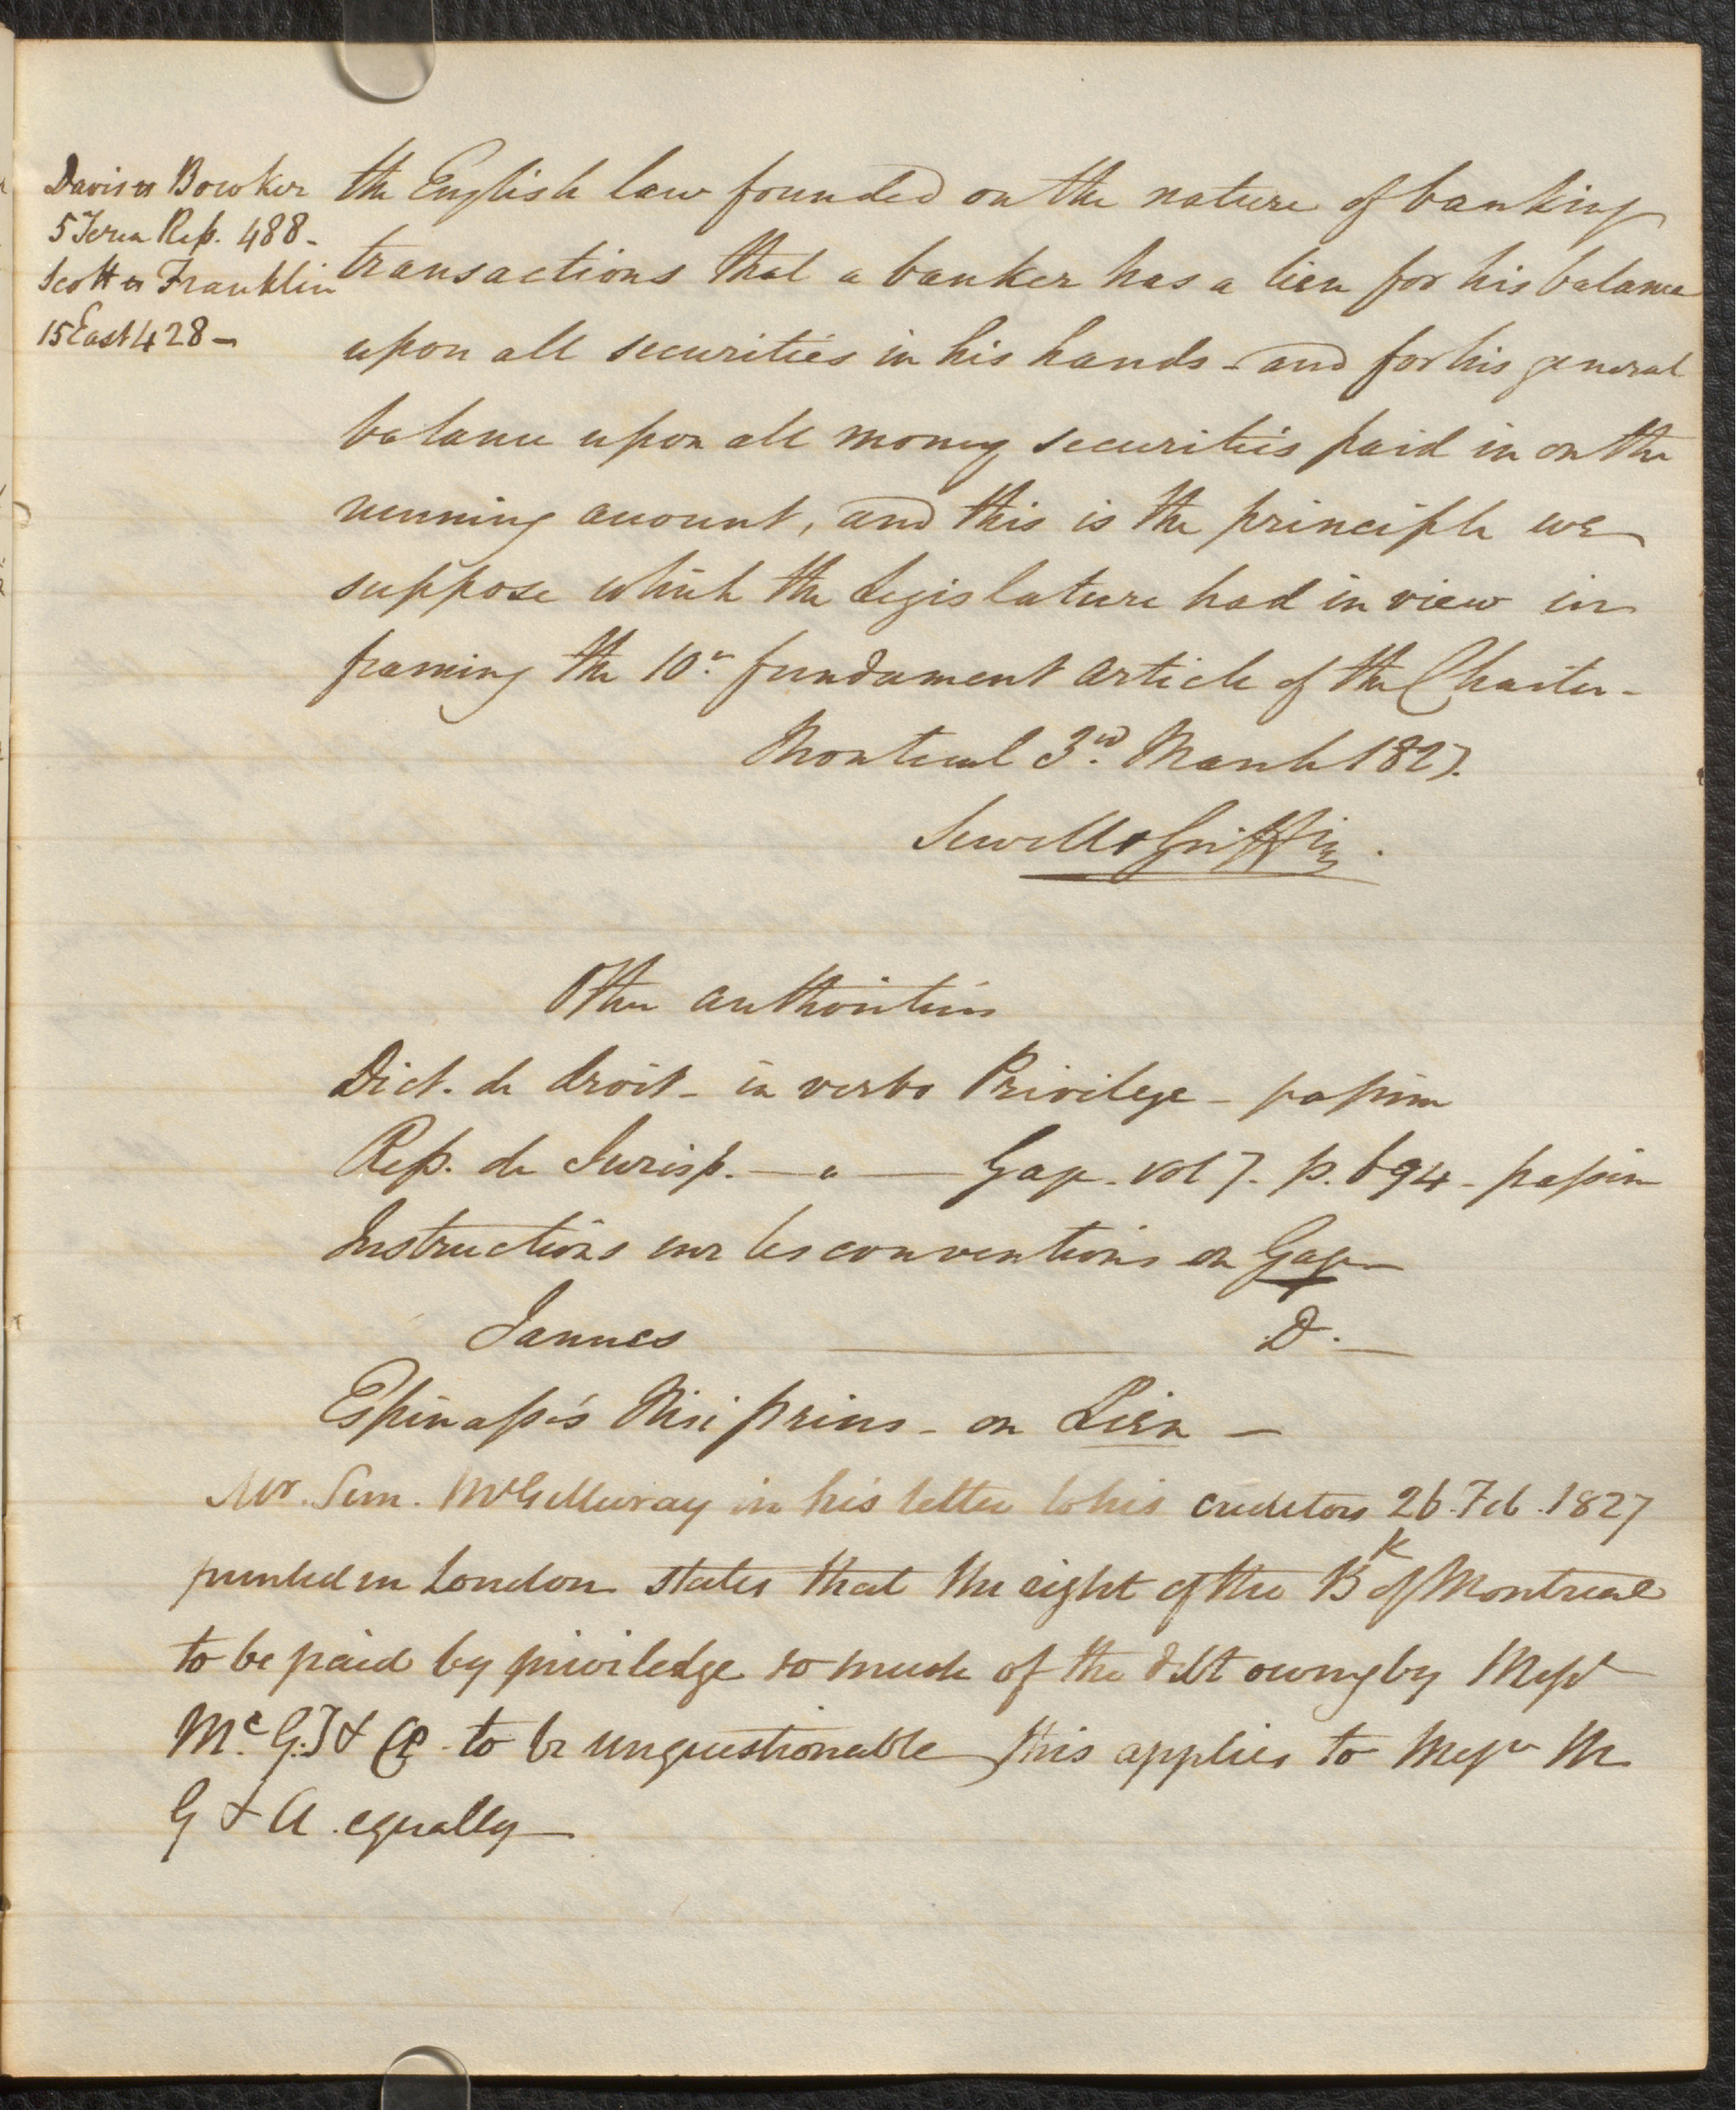 Davis vs Bowker
5 Term Rep. 488 -
Scott vs Franklin
15 East 428 -
the English law founded on the nature of banking
transactions that a banker has a lien for his balance
upon all securities in his hands - and for his general
balance upon all money securities paid in on the
running account, and this is the principle we
suppose which the Legislature had in view in
framing the 10th fundament article of the Charter -
Montreal 3rd March 1827.
Sewell & Griffin.
Other authorities
Dict. de droit - in verbo Privilege - passim
Rep. de Jurisp. — " — Gage. vol 7. p. 694 - passim
Instructions sur les conventions on Gage —
Jannes — Do. —
Espinasse's Nisi prius - on Lien —
Mr. Sim. McGillivray in his letter to his creditors 26. Feb. 1827
printed in London states that the right of the Bk of Montreal
to be paid by priviledge so much of the debt owing by Messrs
McG. T & Co. to be unquestionable this applies to Messrs M
G & A. equally —